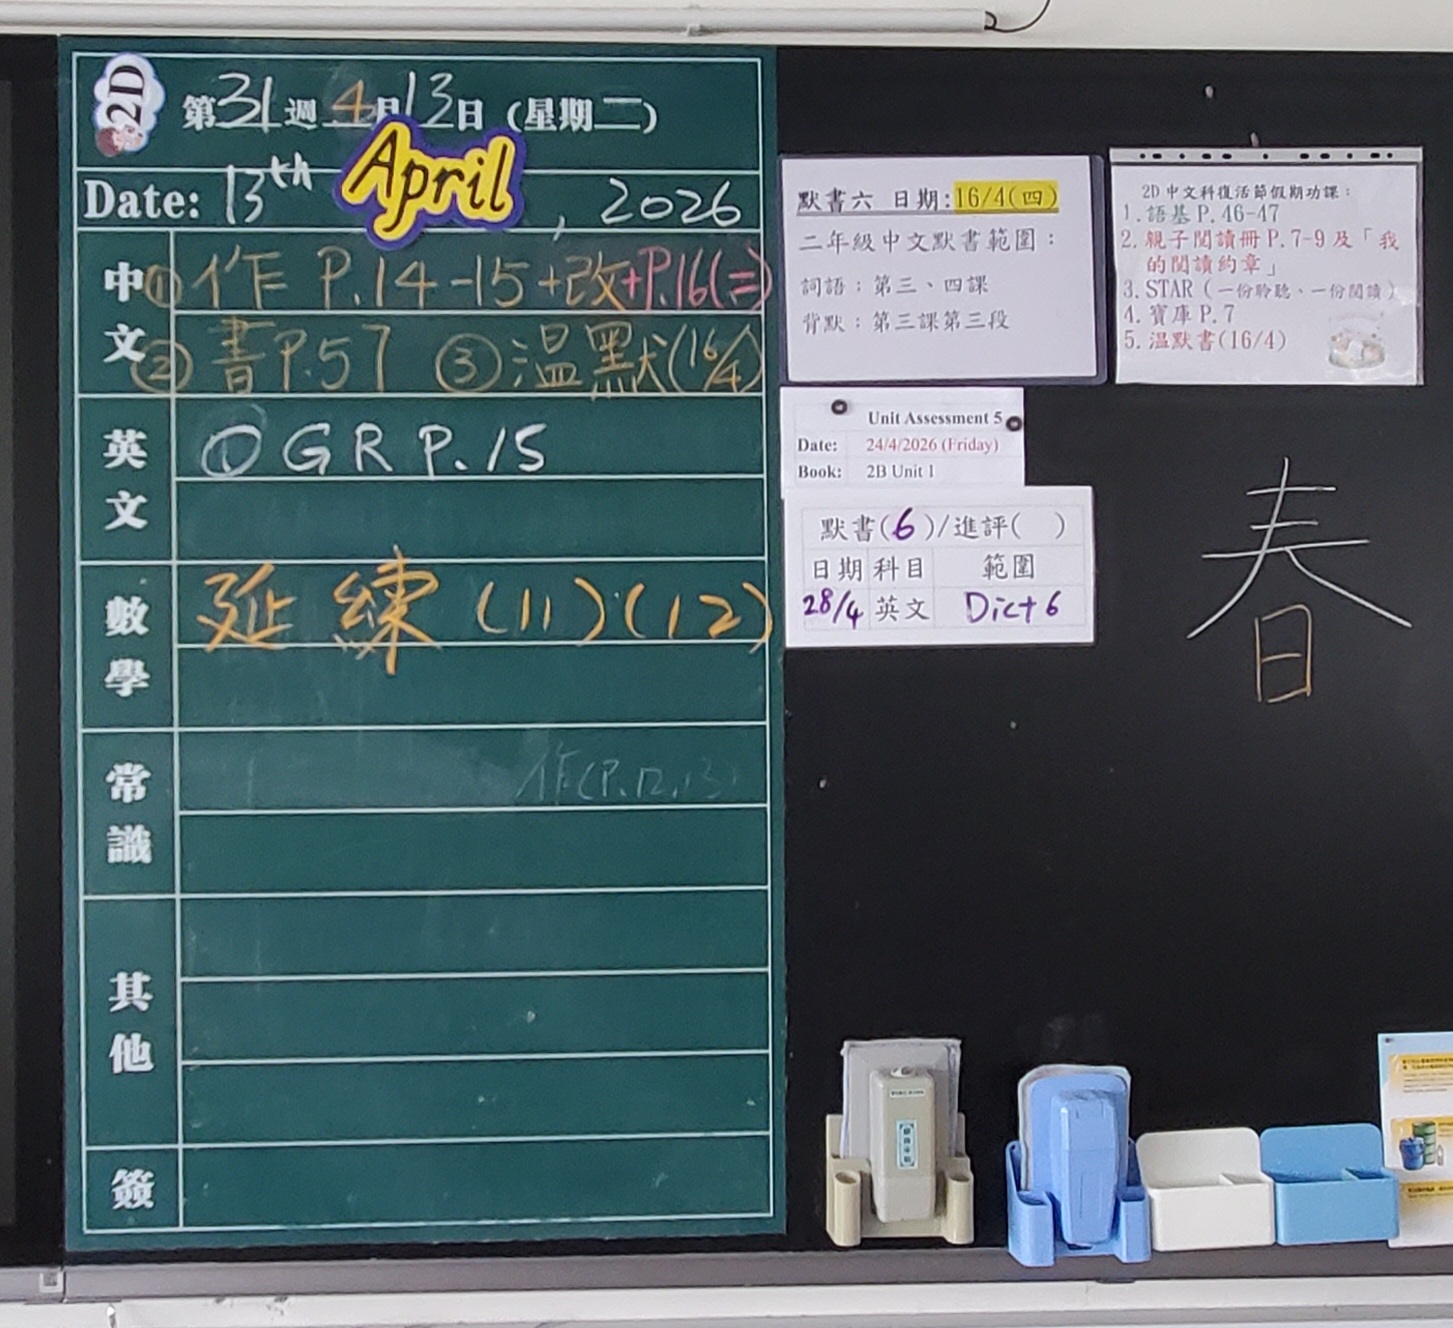 2D
第31週 4月13日 (星期二)
Date: 13th April, 2026
中文
① 作 P.14-15+改+P.16(二)
② 書P.57 ③ 温默(16/4)
英文
① GR P.15
數學
延練 (11)、(12)
常識
作(P.12,13)
其他
簽
默書六 日期:16/4(四)
二年級中文默書範圍：
詞語：第三、四課
背默：第三課第三段
2D中文科復活節假期功課：
1. 語基 P.46-47
2. 親子閱讀冊 P.7-9 及「我
的閱讀約章」
3. STAR（一份聆聽、一份閱讀）
4. 寶庫 P.7
5. 温默書(16/4)
Unit Assessment 5
Date: 24/4/2026 (Friday)
Book: 2B Unit 1
默書(6)/進評( )
日期 科目 範圍
28/4 英文 Dict 6
春